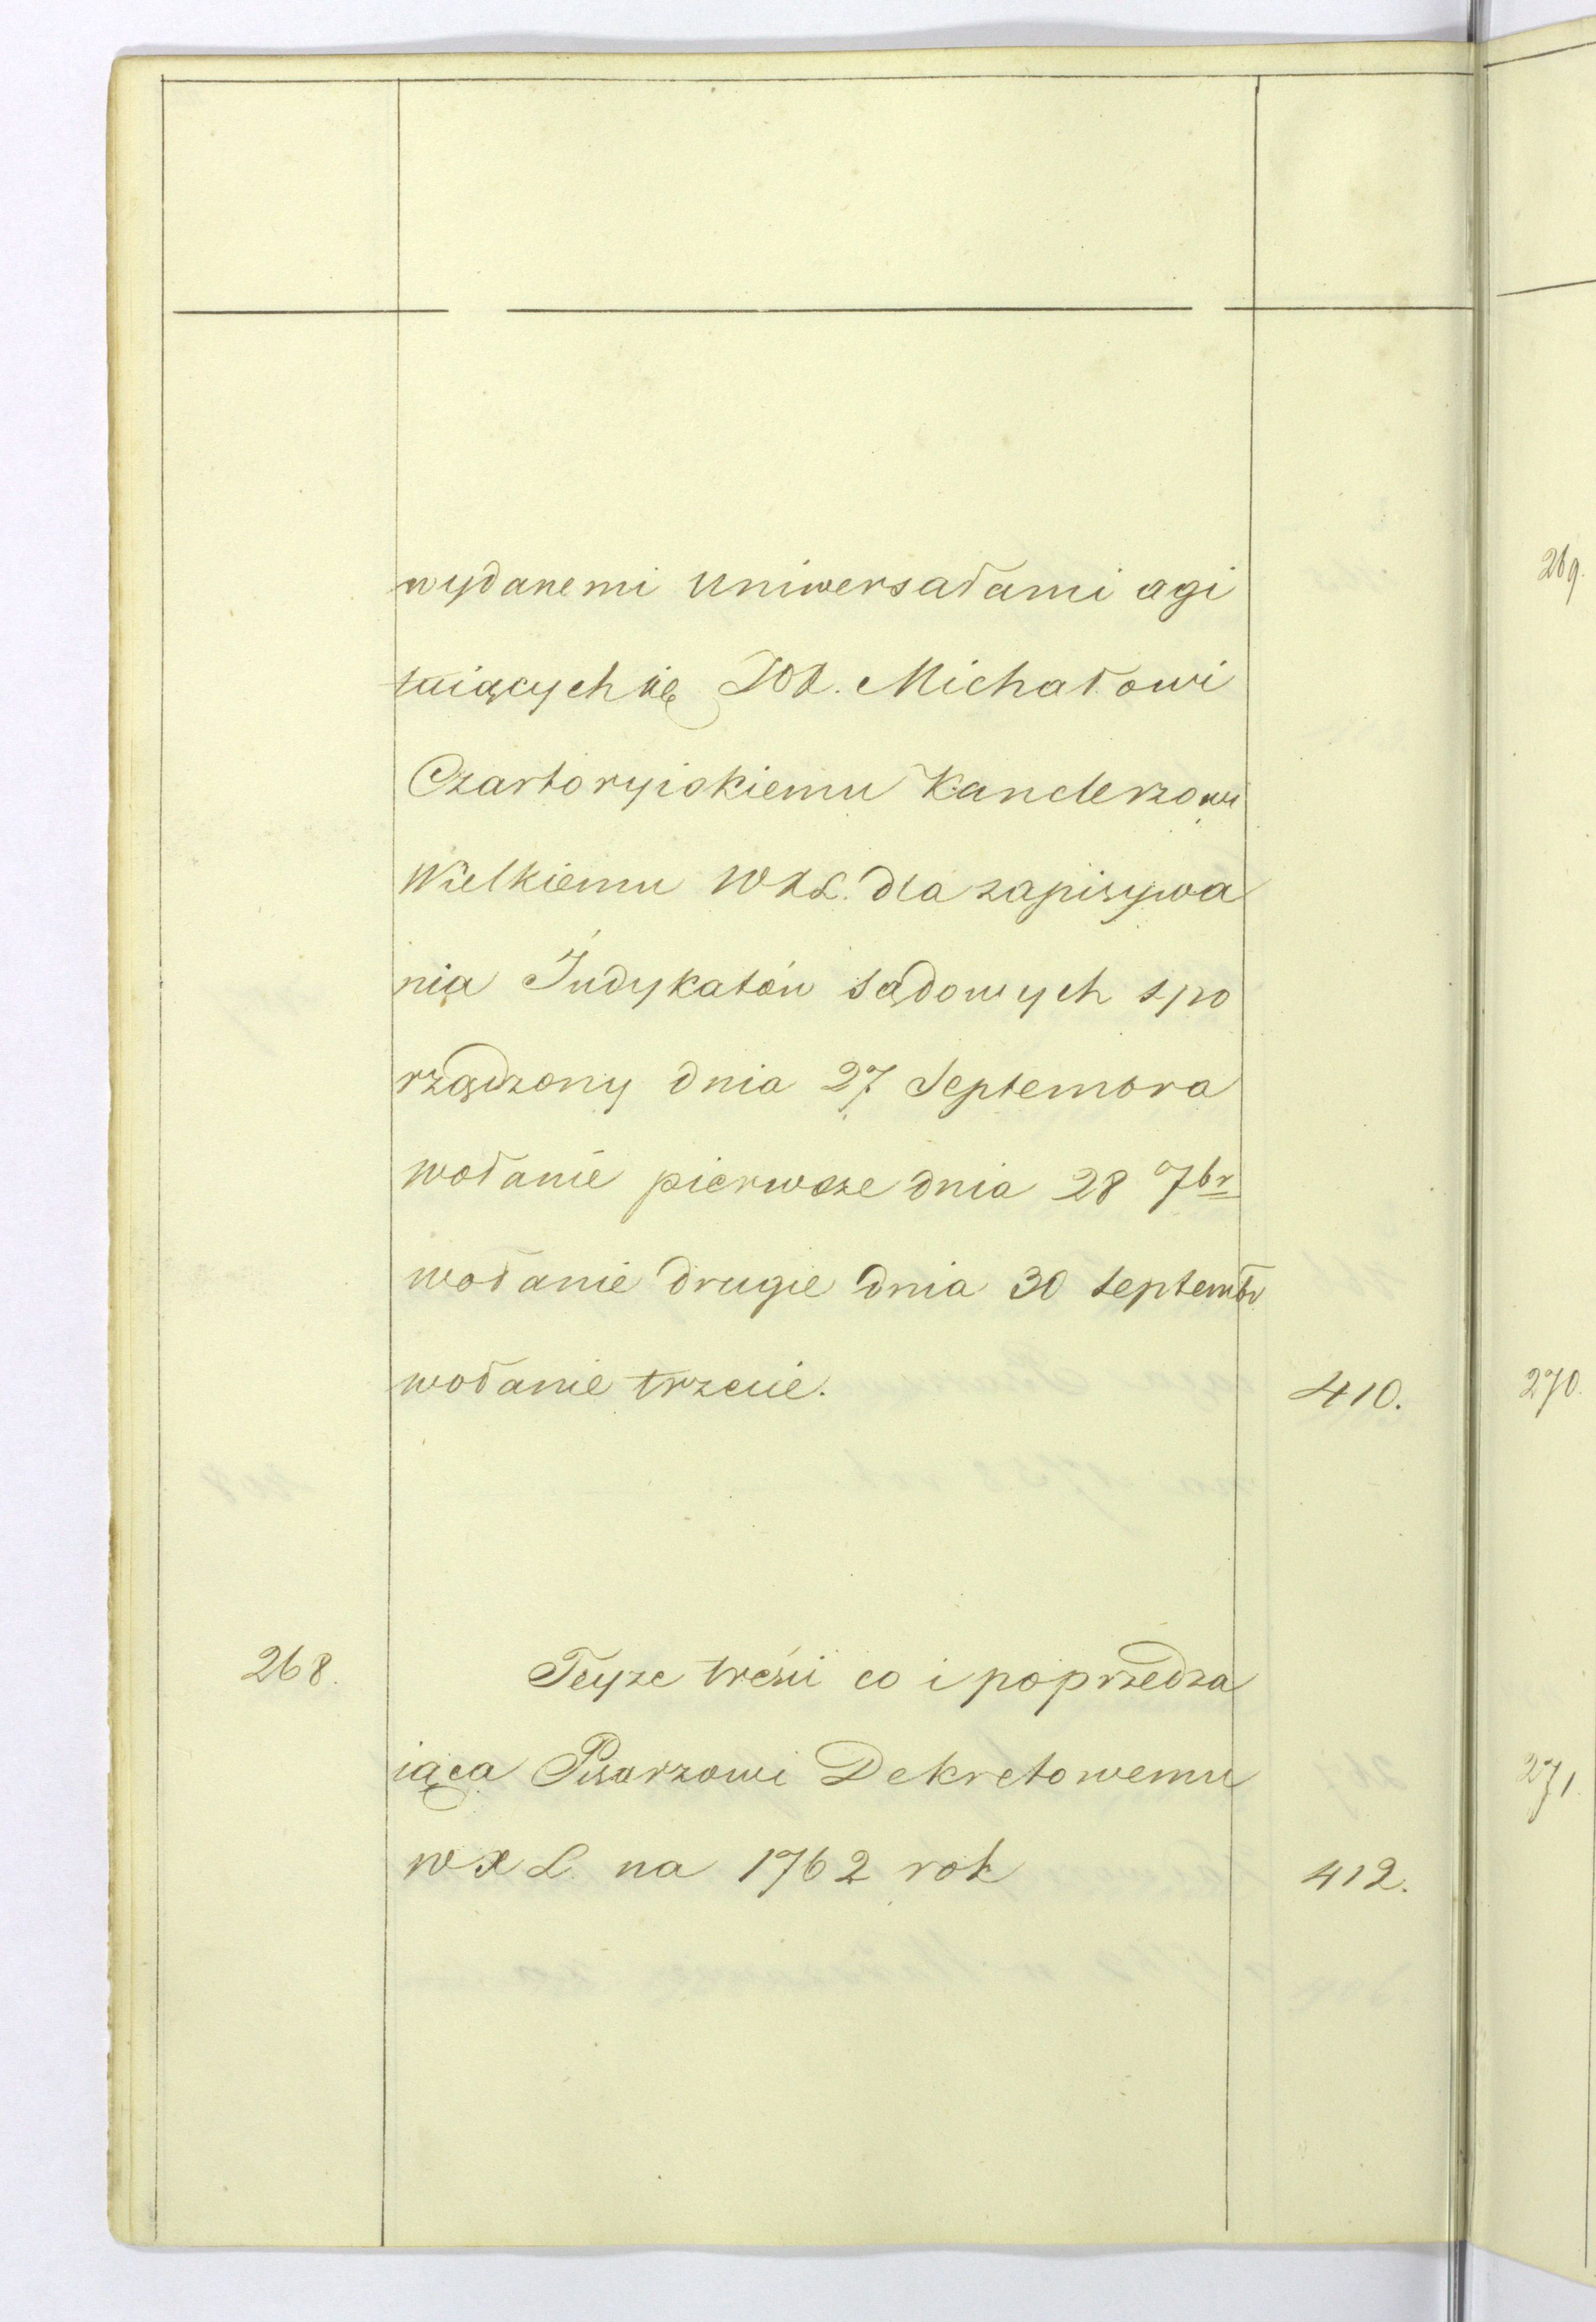 wydanemi Uniwersałami agi
tuiących się JOX. Michałowi
Czartoryiskiemu Kanclerzowi
Wielkiemu WXL. dla zapisywa
nia Indykatów sądowych spo
rządzony dnia 27 Septembra
wołanie pierwsze dnia 28 7br
wołanie drugie dnia 30 Septembr
wołanie trzecie. 410.
268. Teyze treści co i poprzedza
iąca Pisarzowi Dekretowemu
WXL na 1762 rok 412.
269.
270.
271.